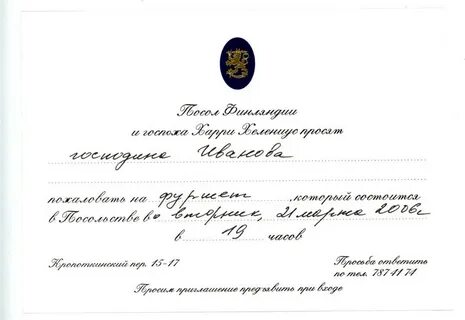 Посол Финляндии
и госпожа Харри Хелениус просят
господина Иванова
пожаловать на фуршет, который состоится
в Посольстве во вторник, 21 марта 2006г
в 19 часов
Кропоткинский пер. 15-17
Просьба ответить
по тел. 787 41 74
Просим приглашение предъявить при входе